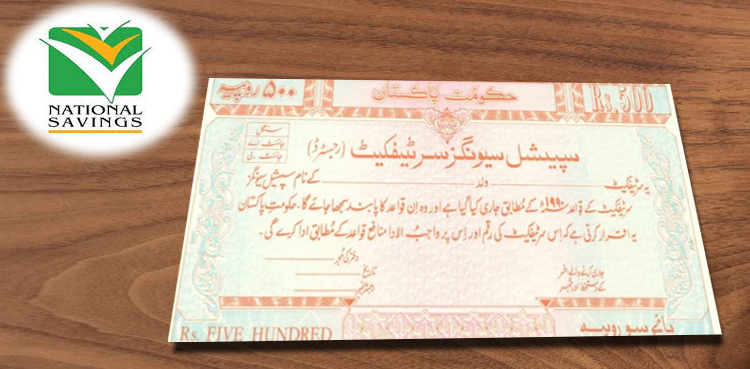 NATIONAL
SAVINGS
۵۰۰ روپیہ
حکومت پاکستان
Rs. 500
سپیشل سیونگز سرٹیفکیٹ (رجسٹرڈ)
یہ سرٹیفکیٹ ولد کے نام سپیشل سیونگز
سرٹیفکیٹ کے قواعد ۱۹۹۰ء کے مطابق جاری کیا گیا ہے اور وہ ان قواعد کا پابند سمجھا جائے گا۔ حکومت پاکستان
یہ اقرار کرتی ہے کہ اس سرٹیفکیٹ کی رقم اور اس پر واجب الادا منافع قواعد کے مطابق ادا کرے گی۔
جاری کرنے والے افسر
کے دستخط اور مہر
دفتر کی مہر
تاریخ
Rs. FIVE HUNDRED
پانچ سو روپیہ